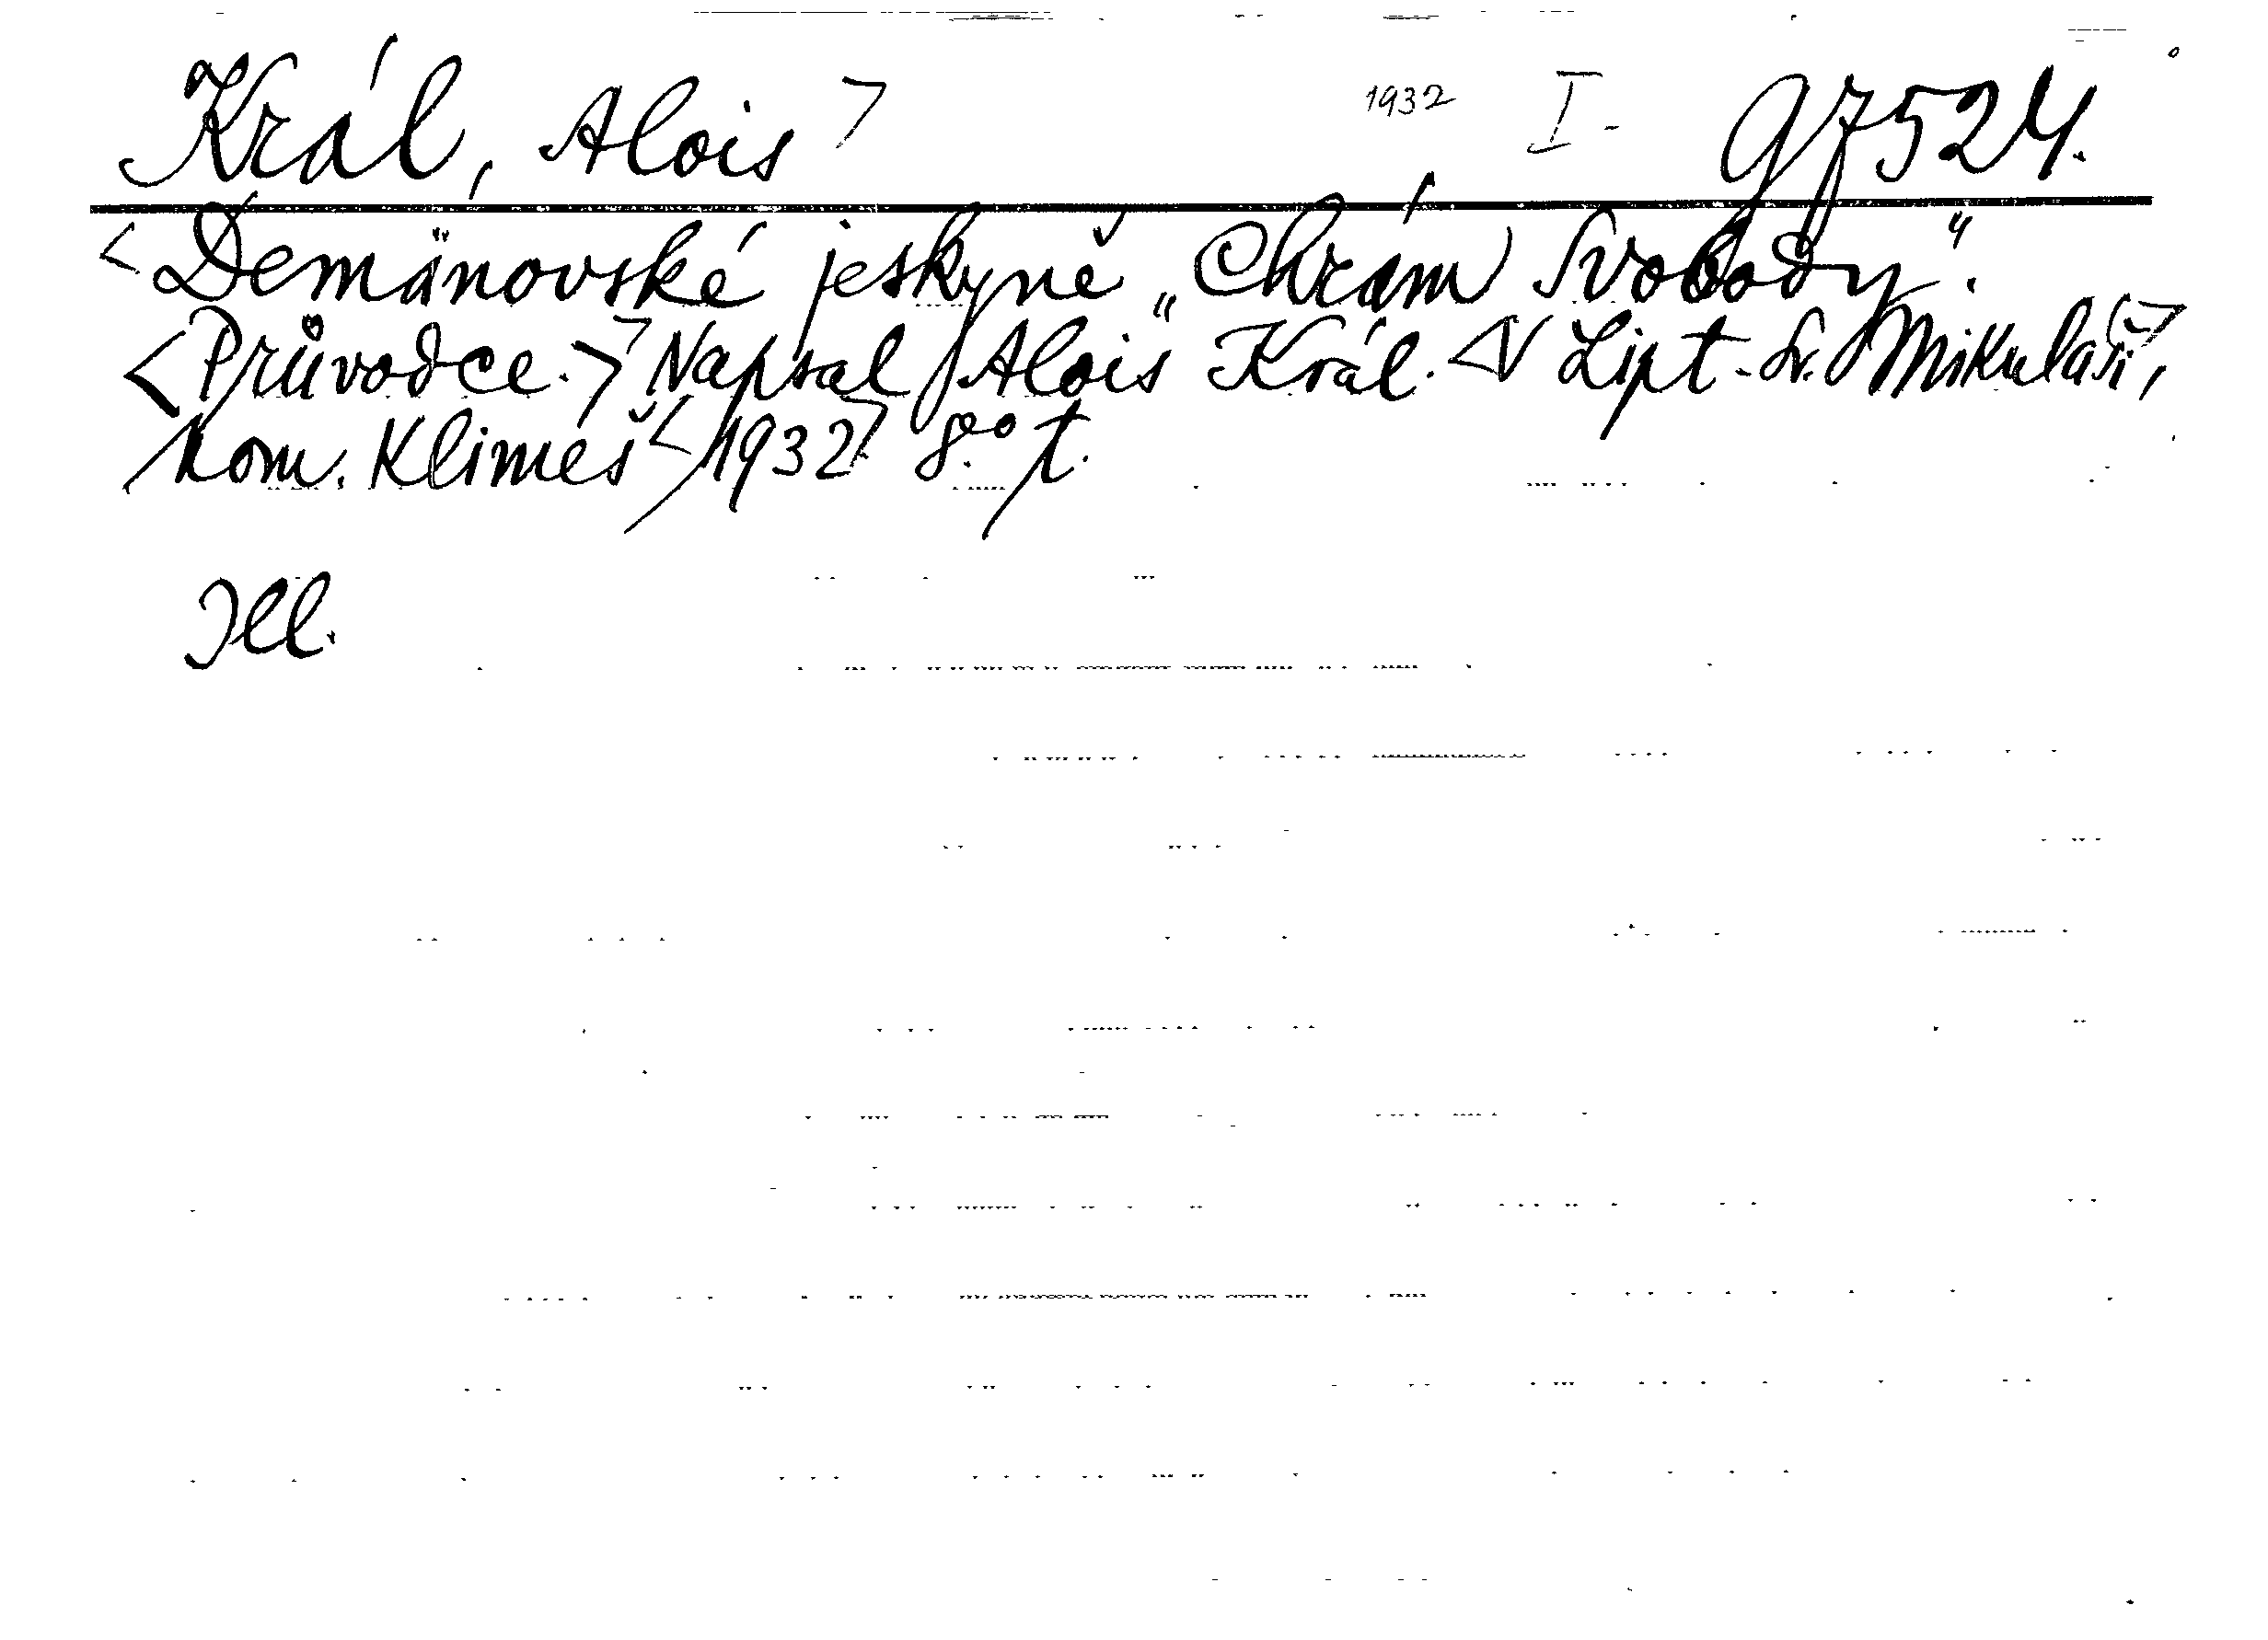 Král, Alois> 1932 I- 97524.
<Demänovské jeskyně „Chrám Svobody“.
<Průvodce.> Napsal Alois Král. <V Lipt.-Sv. Mikuláši>,
kom. Klimeš <1932> 8°. t.
Ill.